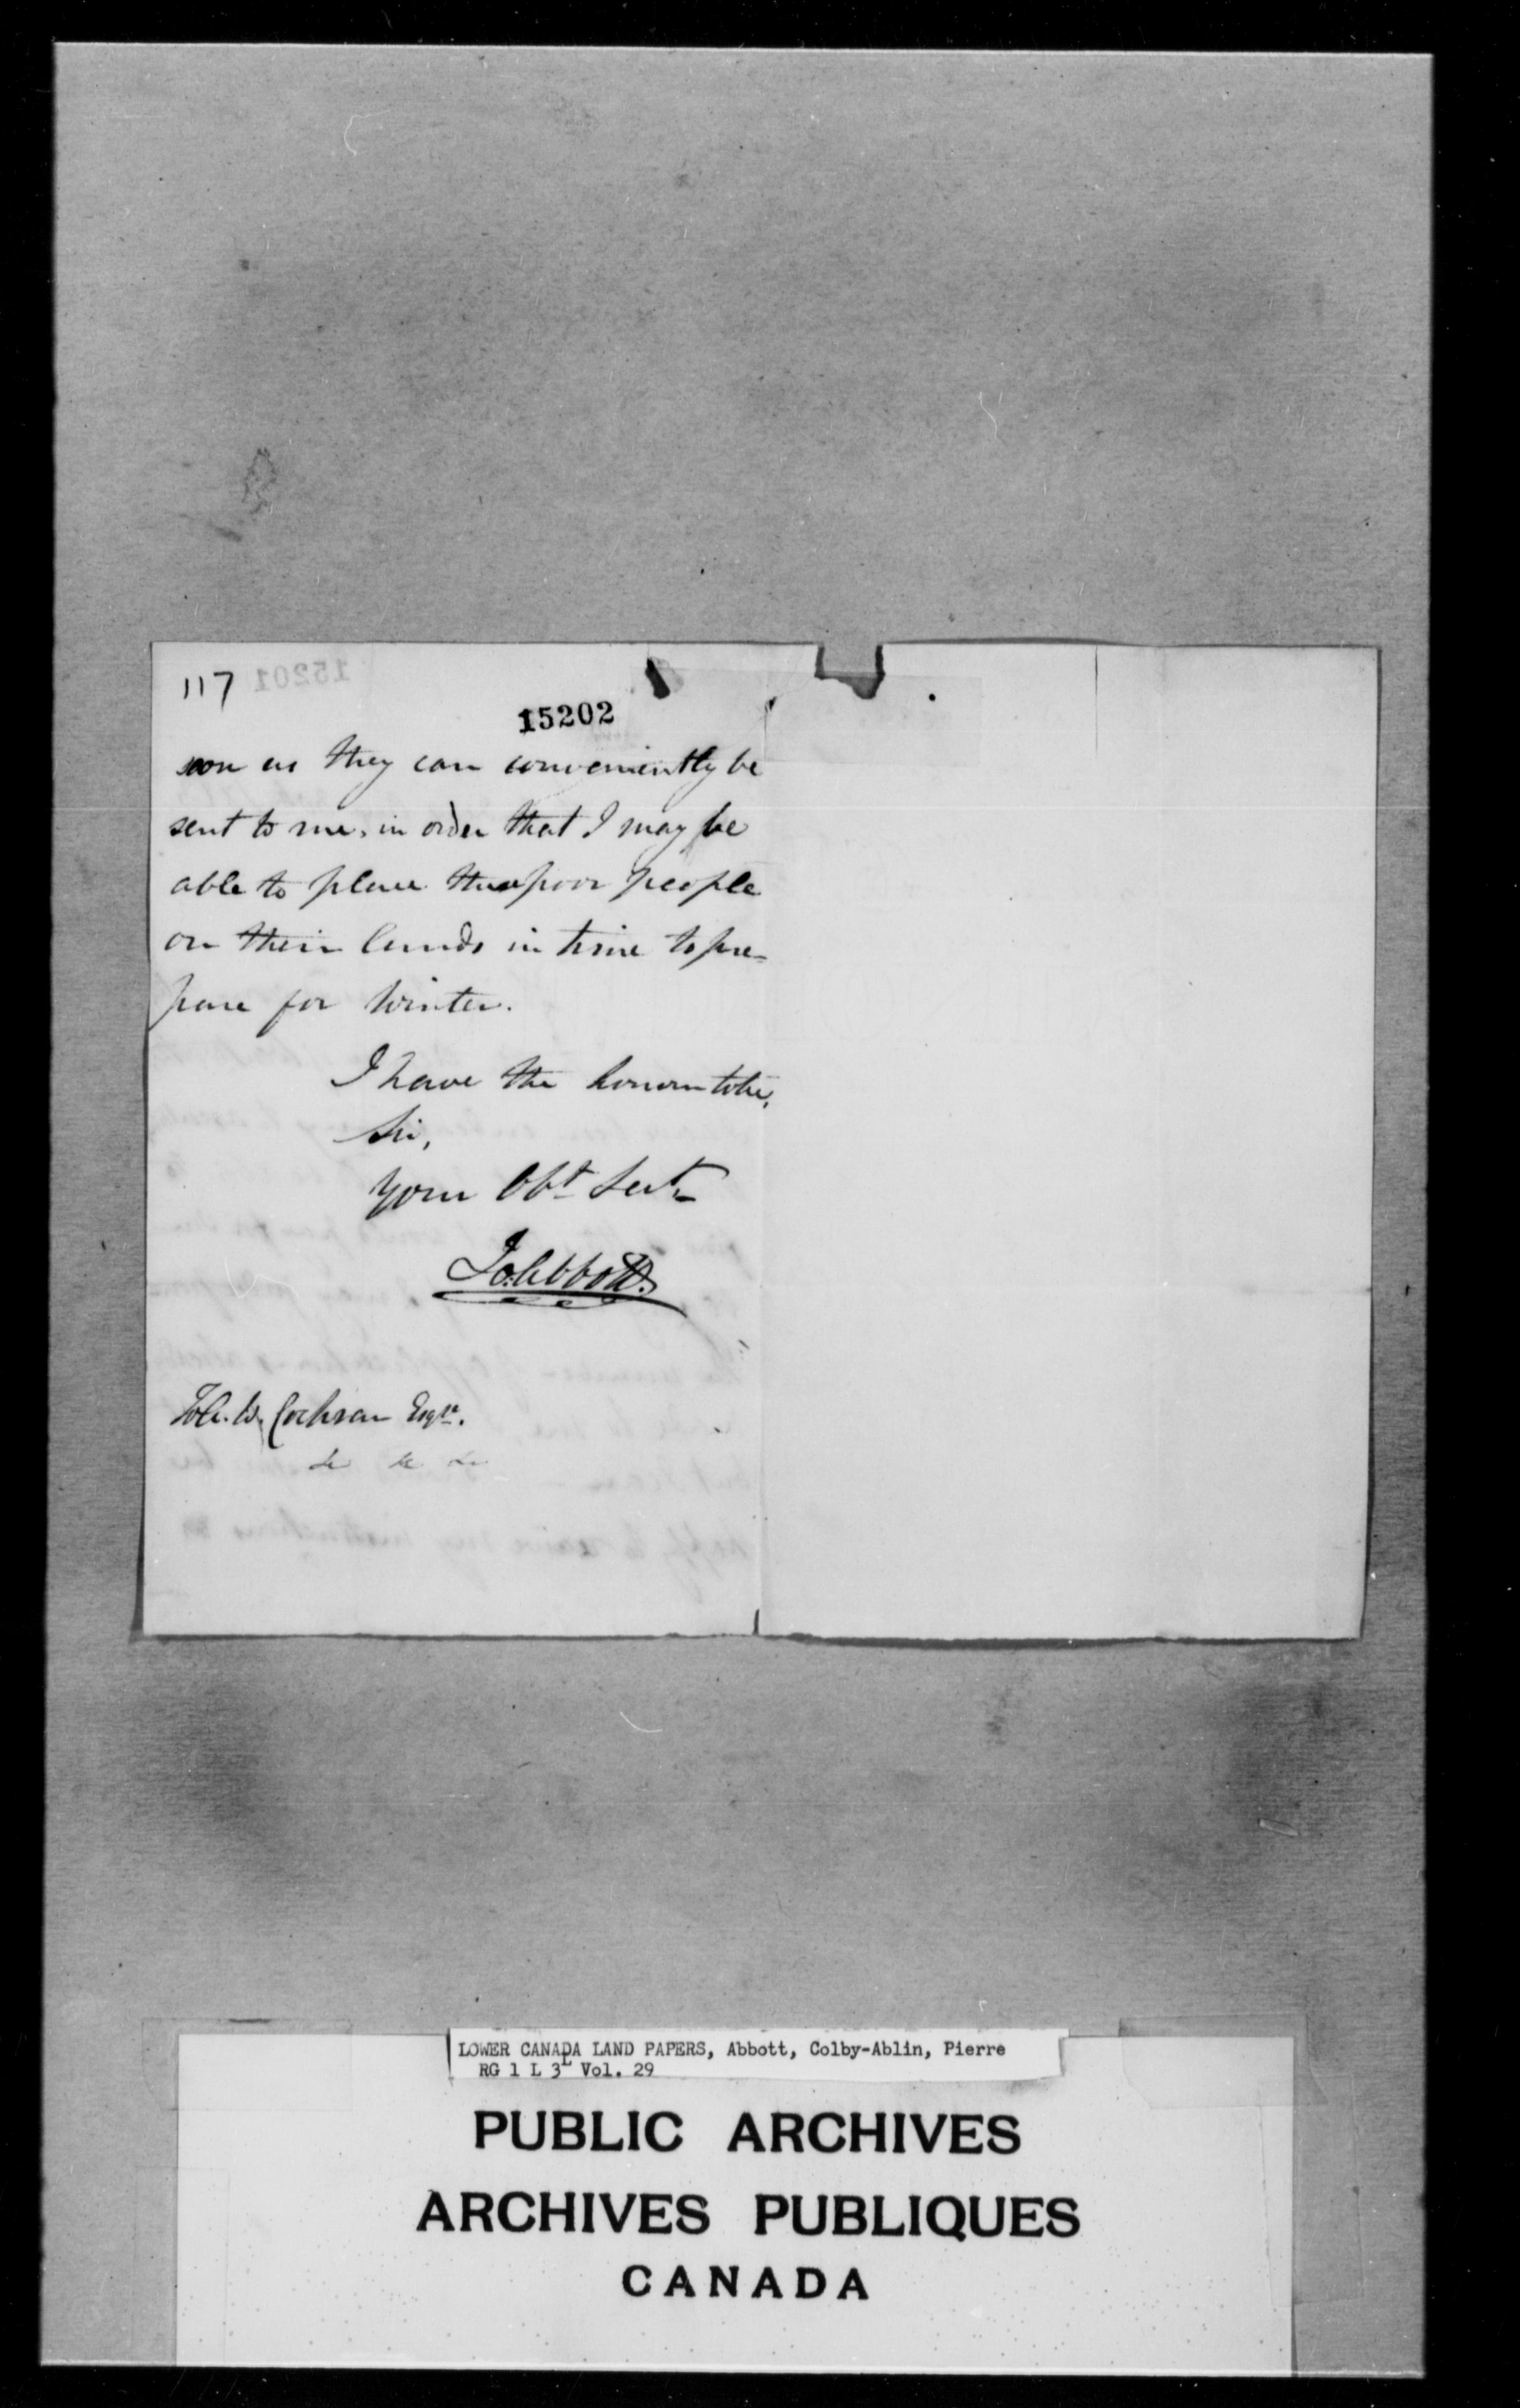 117
15201
15202
soon as they can conveniently be
sent to me, in order that I may be
able to place these poor people
on their lands in time to pre-
pare for Winter.
I have the honour to be,
Sir,
your Obt Servt
Jo. Abbott.
To A. W. Cochran Esqre.
&c &c &c
LOWER CANADA LAND PAPERS, Abbott, Colby-Ablin, Pierre
RG 1 L 3L Vol. 29
PUBLIC ARCHIVES
ARCHIVES PUBLIQUES
CANADA